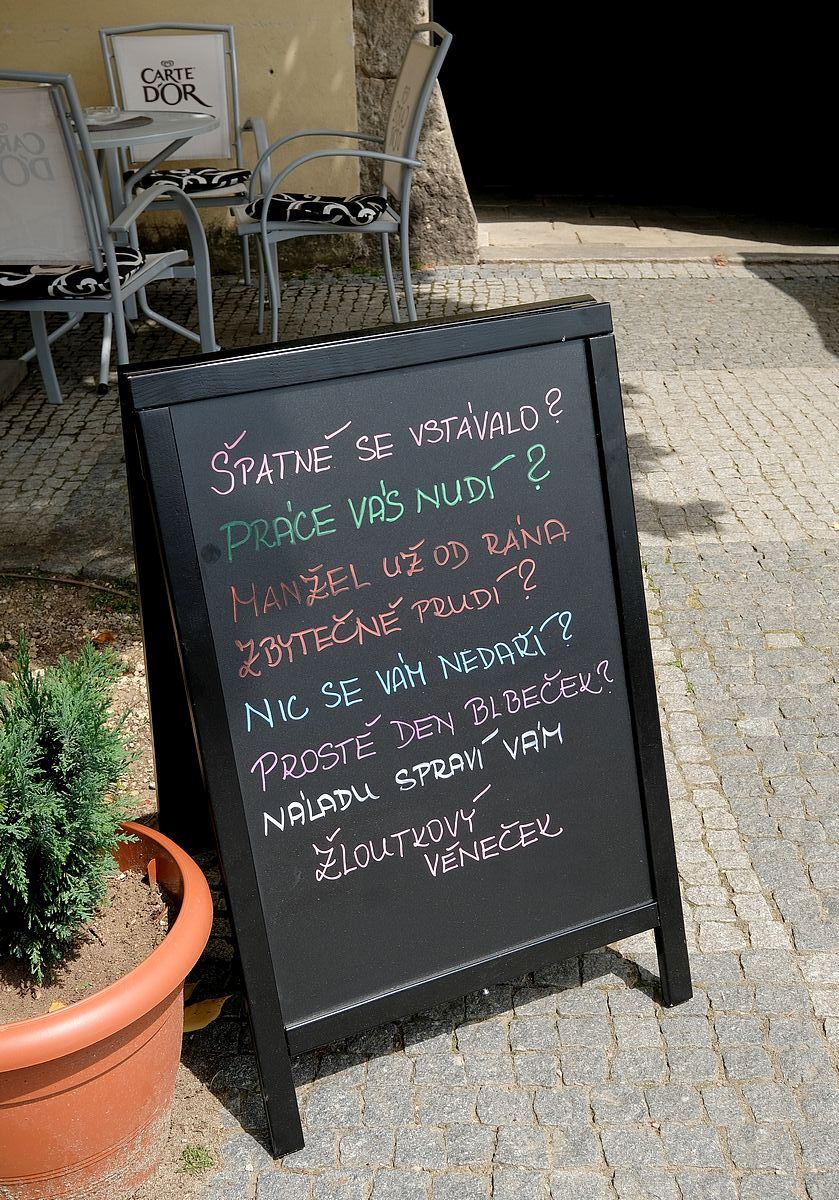 CARTE
D'OR
CARTE
D'OR
ŠPATNĚ SE VSTÁVALO?
PRÁCE VÁS NUDÍ?
MANŽEL UŽ OD RÁNA
ZBYTEČNĚ PRUDÍ?
NIC SE VÁM NEDAŘÍ?
PROSTĚ DEN BLBEČEK?
NÁLADU SPRAVÍ VÁM
ŽLOUTKOVÝ
VĚNEČEK